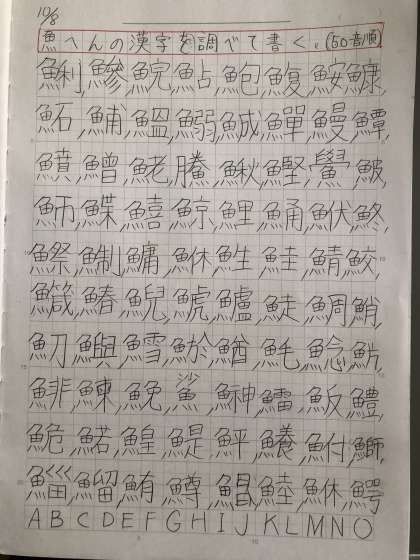 10/8
魚へんの漢字を調べて書く。(50音順)
鯏 鯵 鯇 鮎 鮑 鰒 鮟 鱇
鮖 鯆 鰮 鰯 鱤 鱓 鰻 鱏
鱝 鱛 鮱 鰧 鰍 鰹 鱟 鮍
魳 鰈 鱚 鯨 鯉 鯒 鮲 鮗
鰶 鯯 鱅 鮴 鮏 鮭 鯖 鮫
鱵 鰆 鯢 鯱 鱸 鯛 鮹
魛 鱮 鱈 鯲 鰌 魹 鯰 魬
鯡 鰊 鮸 鯊 鰰 鱩 鰉 鱧
鮠 鰙 鰉 鯷 鮃 鱶 鮒 鰤
鯔 鰡 鮪 鱒 鯥 鮴 鰐
A B C D E F G H I J K L M N O